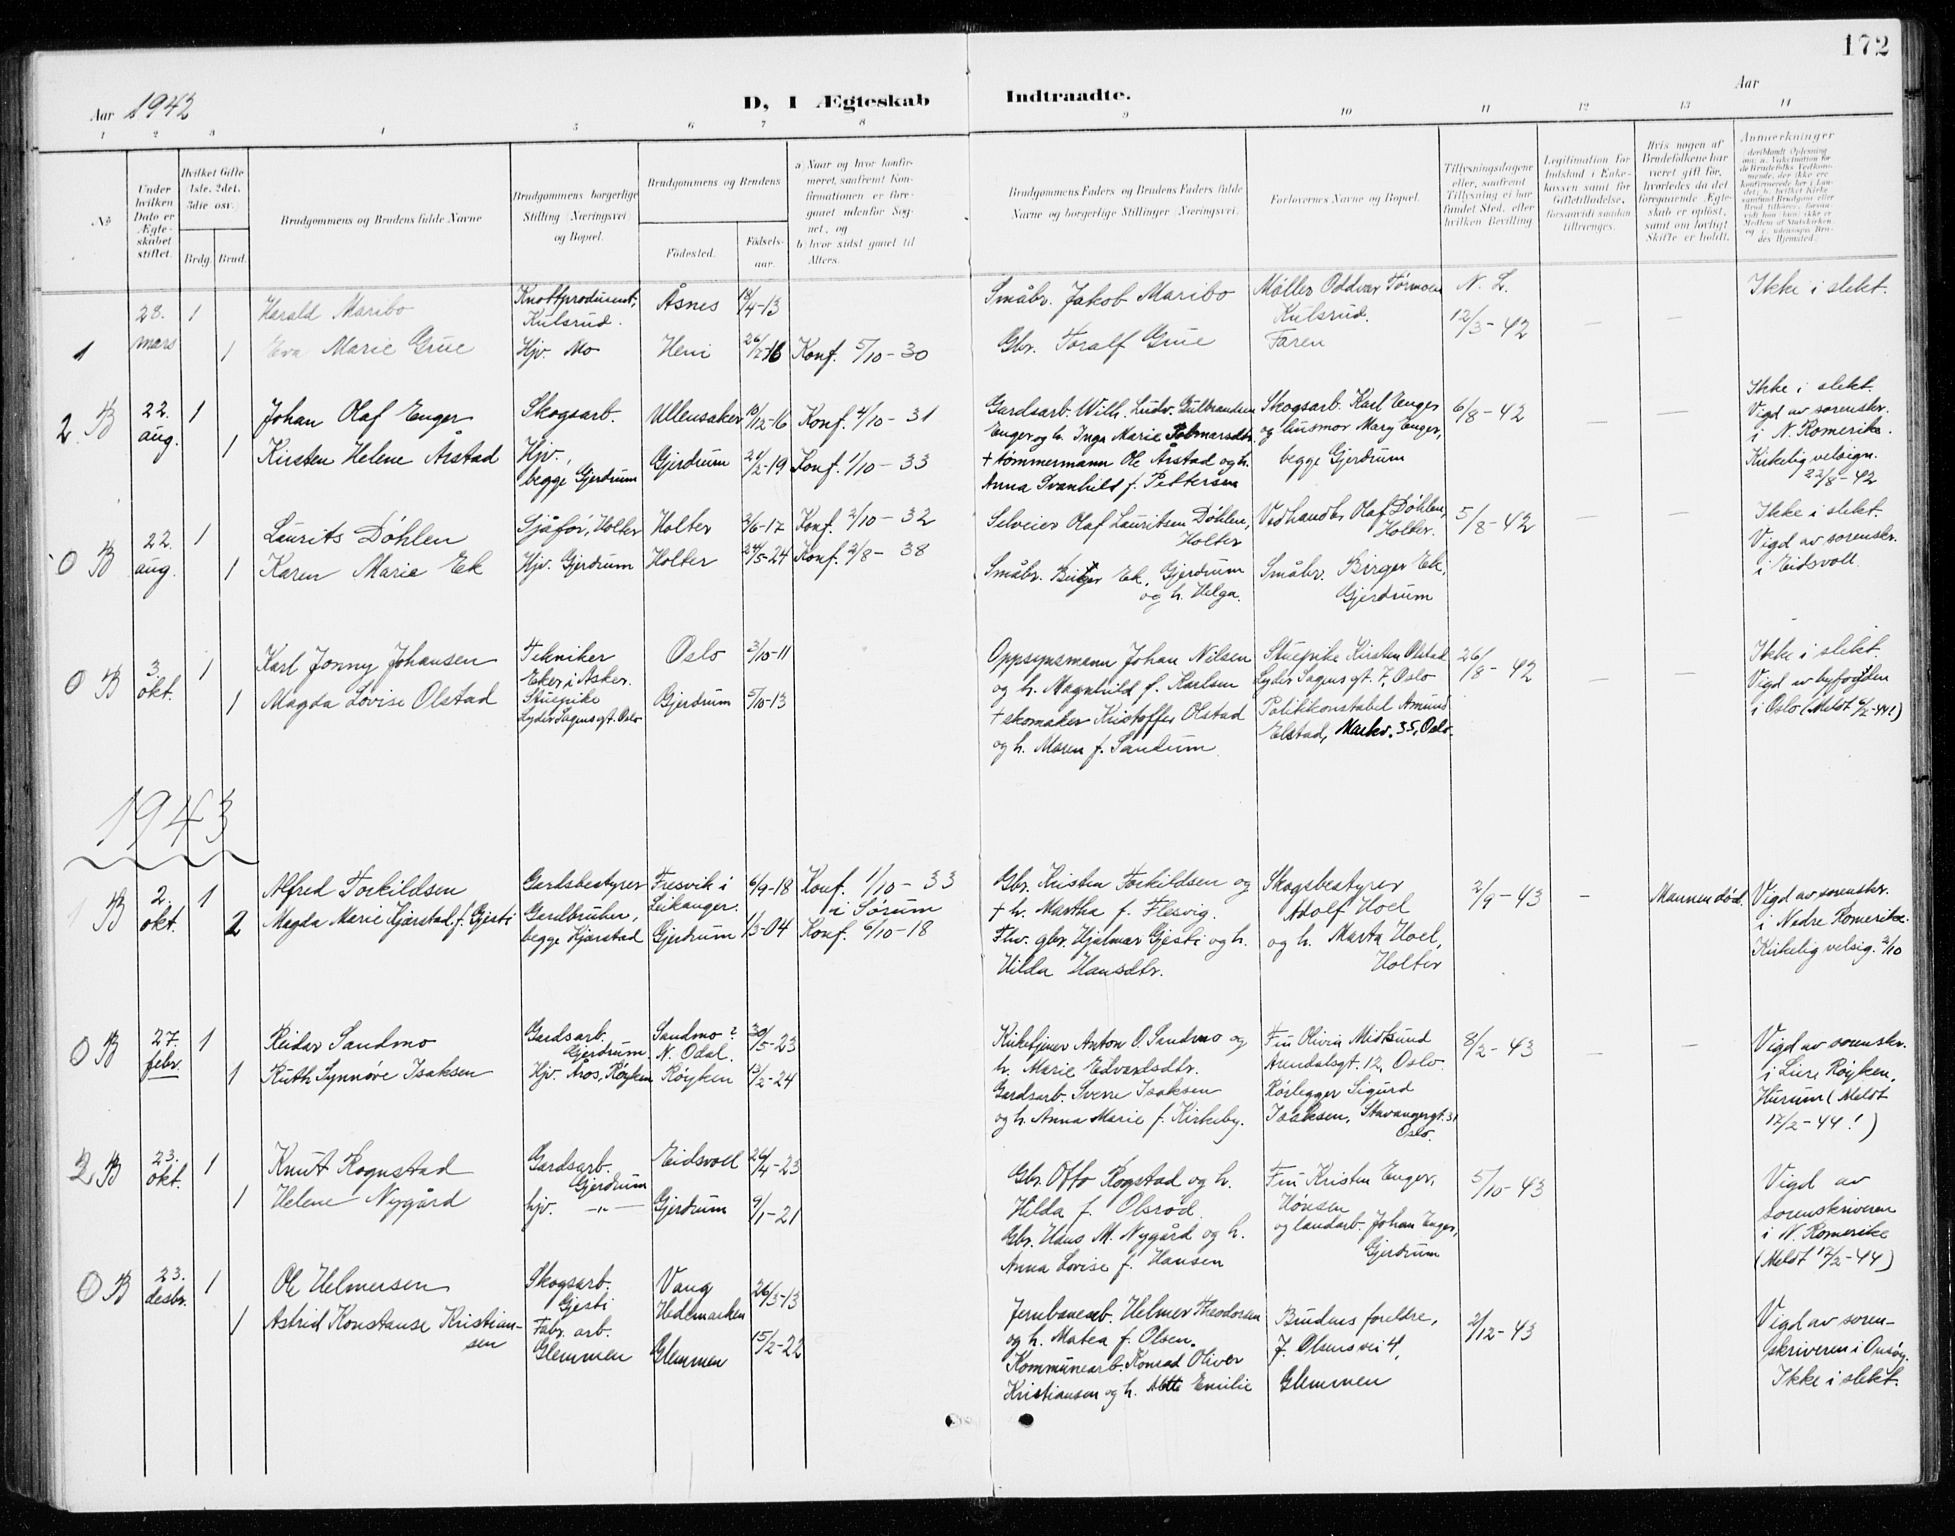 172
Aar 1942
D, I Ægteskab Indtraadte.
Aar
1 2 3 4 5 6 7 8 9 10 11 12 13 14
No
Under hvilken Dato er Ægteskabet stiftet.
Hvilket Gifte 1ste, 2det, 3die osv.
Brdg. Brud.
Brudgommens og Brudens fulde Navne
Brudgommens borgerlige Stilling (Næringsvei) og Bopæl.
Brudgommens og Brudens
Fødested. Fødselsaar.
a Naar og hvor konfirmeret, saafremt Konfirmationen er foregaaet udenfor Sognet, og
b hvor sidst gaaet til Alters.
Brudgommens Faders og Brudens Faders fulde Navne og borgerlige Stillinger (Næringsvei).
Forlovernes Navne og Bopæl.
Tillysningsdagene eller, saafremt Tillysning ei har fundet Sted, efter hvilken Bevilling
Legitimation for Indskud i Enkekassen samt for Giftetilladelse, forsaavidt saadan tiltrænges.
Hvis nogen af Brudefolkene har været gift før, hvorledes da det foregaaende Ægteskab er opløst, samt om lovligt Skifte er holdt.
Anmerkninger
1
28. mars
1
Harald Maribo
Knottprodusent, Kulsrud.
Åsnes
18/4-13
Småbr. Jakob Maribo
Møller Oddvar Tørmoen Kulsrud.
N. L.
12/3-42
Ikke i slekt.
1
Eva Marie Grue
Hjv. Mo
Heni
Konf. 5/10-30
Gbr. Toralf Grue
Faren
2 B
22. aug.
1
Johan Olaf Enger
Skogsarb.
Ullensaker
10/12-16
Konf. 4/10-31
Gardsarb. Wilh. Ludv. Gulbrandsen
Enger og h. Inga Marie
Skogsarb. Karl Enger
og husmor Mary Enger,
begge Gjerdrum
6/8-42
Ikke i slekt.
Vigd av sorenskr.
i N. Romerike.
Kirkelig velsign.
22/8-42
1
Kirsten Helene Årstad
Hjv.,
begge Gjerdrum
Gjerdrum
Konf. 1/10-33
+ tømmermann Ole Årstad og h.
Anna Svanhild f. Pettersen
0 B
22. aug.
1
Laurits Døhlen
Sjåfør, Holter
Holter
3/6-17
Konf. 2/10-32
Selveier Olaf Lauritsen Døhlen,
Holter
Vedhandl. Olaf Døhlen,
Holter.
5/8-42
Ikke i slekt.
Vigd av sorenskr.
i Eidsvoll.
1
Karen Marie Ek
Hjv. Gjerdrum
Holter
24/5-24
Konf. 2/8-38
Småbr. Birger Ek, Gjerdrum
og h. Helga.
Småbr. Birger Ek,
Gjerdrum
0 B
3. okt.
1
Karl Jonny Johansen
Tekniker
Eker i Asker.
Oslo
3/10-11
Oppsynsmann Johan Nilsen
og h. Magnhild f. Karlsen
Stuepike Kirsten Olstad
Lyder Sagens gt. 7, Oslo
26/8-42
Ikke i slekt.
Vigd av byfogden
i Oslo
1
Magda Lovise Olstad
Stuepike
Lyder Sagens gt. Oslo
Gjerdrum
5/10-13
+ skomaker Kristoffer Olstad
og h. Maren f. Sandum
Politikonstabel Amund
Elstad, Markv. 35, Oslo.
1943
1 B
2. okt.
1
Alfred Torkildsen
Gardsbestyrer
Fresvik i
Leikanger.
6/9-18
Konf. 1/10-33
i Sørum
Gbr. Kristen Torkildsen og
+ h. Martha f. Flesvig.
Skogsbestyrer
Adolf Hoel
og h. Marta Hoel,
Holter
2/9-43
Mannen død.
Vigd av sorenskr.
i Nedre Romerike.
Kirkelig velsig. 2/10
2
Magda Marie Kjærstad f. Gjesti
Gardbruker,
begge Kjærstad
Gjerdrum
1/3-04
Konf. 6/10-18
Fhv. gbr. Hjalmar Gjesti og h.
Hilda Hansdtr.
0 B
27. febr.
1
Reidar Sandmo
Gardsarb.
Gjerdrum.
Sandmo?
N. Odal.
30/5-23
Kirketjener Anton O. Sandmo og
h. Marie Edvardsdtr.
Frk. Olivia Midtsund
Arendalsgt. 12, Oslo.
8/2-43
Vigd av sorenskr.
i Lier Røyken,
Hurum (Meldt
17/2-44!)
1
Ruth Synnøve Isaksen
Hjv. Åros, Røyken
Røyken
13/2-24
Gardsarb. Sverre Isaksen
og h. Anna Marie f. Kirkeby.
Rørlegger Sigurd
Isaksen, Stavangergt. 31
Oslo.
2 B
23. okt.
1
Knut Rognstad
Gardsarb.
Gjerdrum
Eidsvoll
26/4-23
Gbr. Otto Rogstad og h.
Hilda f. Olsrød.
Frk. Kristen Enger,
Hønsen
og landarb. Johan Enger,
Gjerdrum
5/10-43
Vigd av
sorenskriveren
i N. Romerike
(Meldt 17/2-44)
1
Helene Nygård
hjv. —„—
Gjerdrum
9/1-21
Gbr. Hans M. Nygård og h.
Anna Lovise f. Hansen
0 B
23. desbr.
1
Ole Helmersen
Skogsarb.
Gjesti
Vang
Hedemarken
26/3-13
Jernbanearb. Helmer Theodorsen
og h. Matea f. Olsen.
Brudens foreldre,
J. Olsens vei 4,
Glemmen
2/12-43
Vigd av soren-
skriveren i Onsøy.
Ikke i slekt.
1
Astrid Konstanse Kristian-
sen
Fabr. arb.
Glemmen
Glemmen
15/2-22
Kommunearb. Konrad Oliver
Kristiansen og h. Emilie